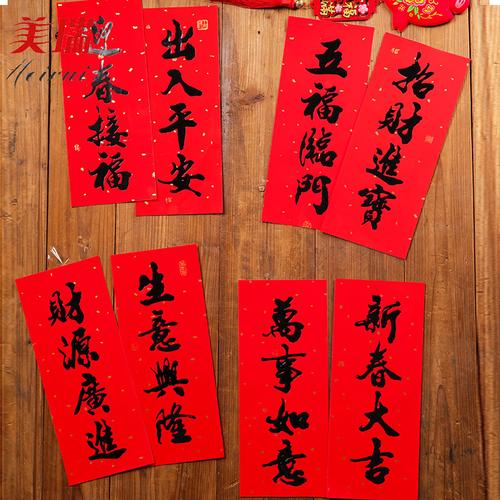 美瑞
Meirui
迎春接福
出入平安
五福臨門
招財進寶
財源廣進
生意興隆
萬事如意
新春大吉